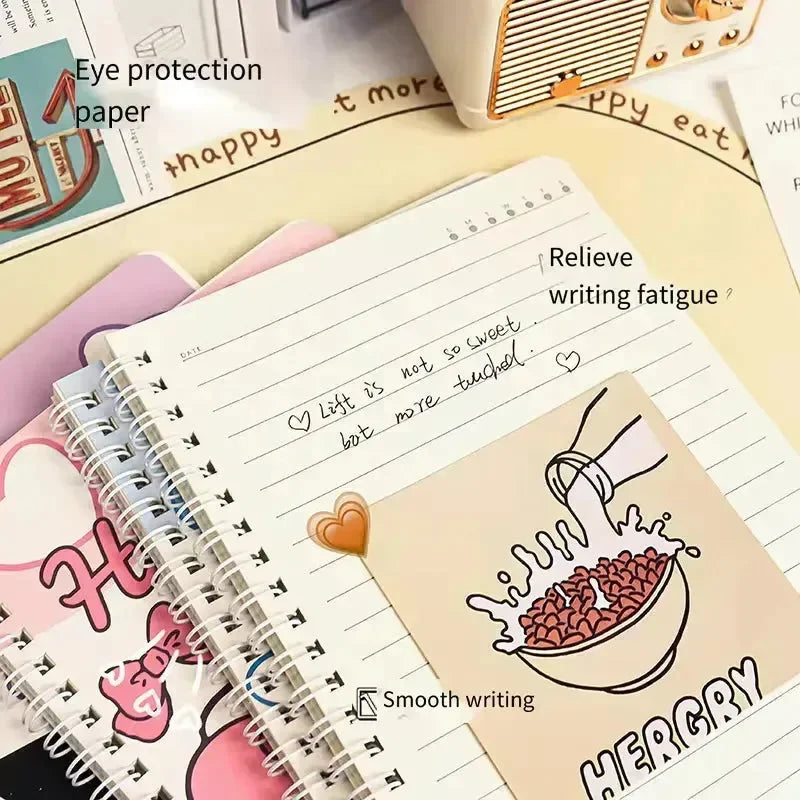 Eye protection
paper
MOTEL
happy
t more
ppy eat
FO
WHI
S M T W T F S
Relieve
writing fatigue
DATE
Lift is not so sweet.
bot more tuched.
H
Smooth writing
HERGRY